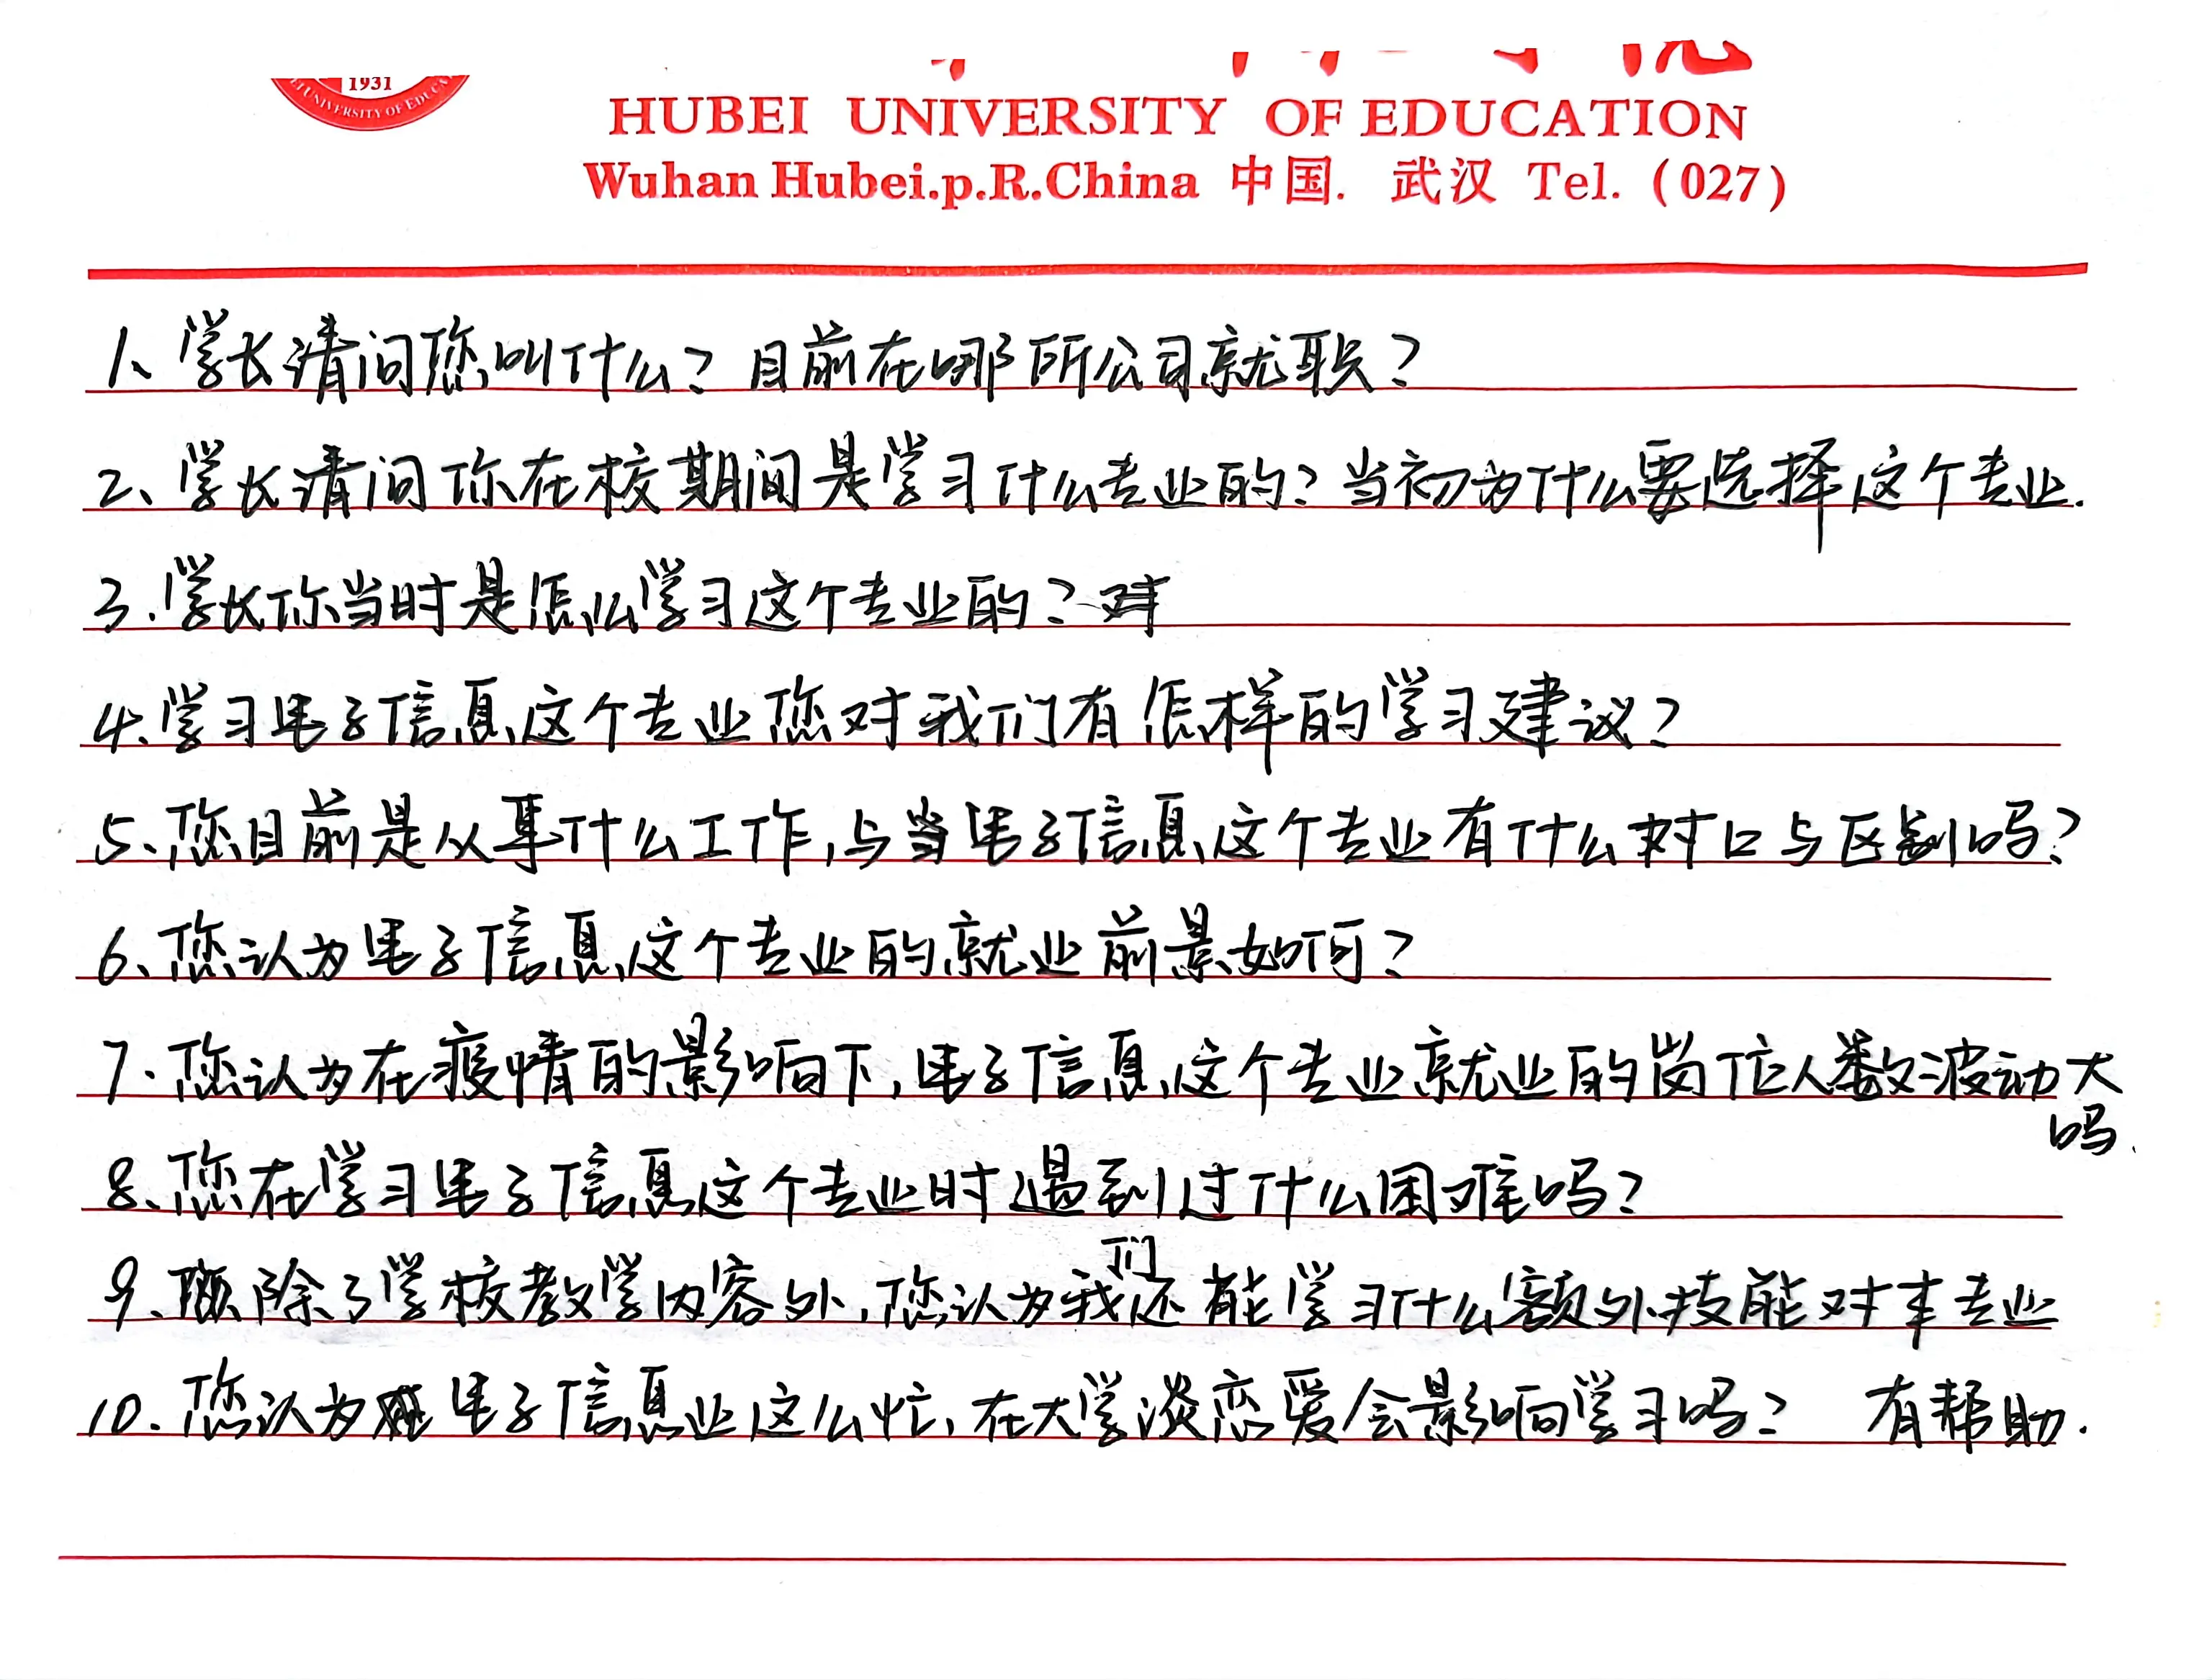 1931
UNIVERSITY OF EDUCA
HUBEI UNIVERSITY OF EDUCATION
Wuhan Hubei.p.R.China 中国. 武汉 Tel. (027)
1、学长请问您叫什么？目前在哪所公司就职？
2、学长请问你在校期间是学习什么专业的？当初为什么要选择这个专业.
3.学长你当时是怎么学习这个专业的？
4.学习电子信息这个专业您对我们有怎样的学习建议？
5、您目前是从事什么工作,与当电子信息这个专业有什么对口与区别吗？
6、您认为电子信息这个专业的就业前景如何？
7、您认为在疫情的影响下,电子信息这个专业就业的岗位人数波动大
吗.
8、您在学习电子信息这个专业时遇到过什么困难吗？
9、除了学校教学内容外,您认为我们还能学习什么额外技能对本专业
有帮助.
10.您认为电子信息业这么忙,在大学谈恋爱会影响学习吗？